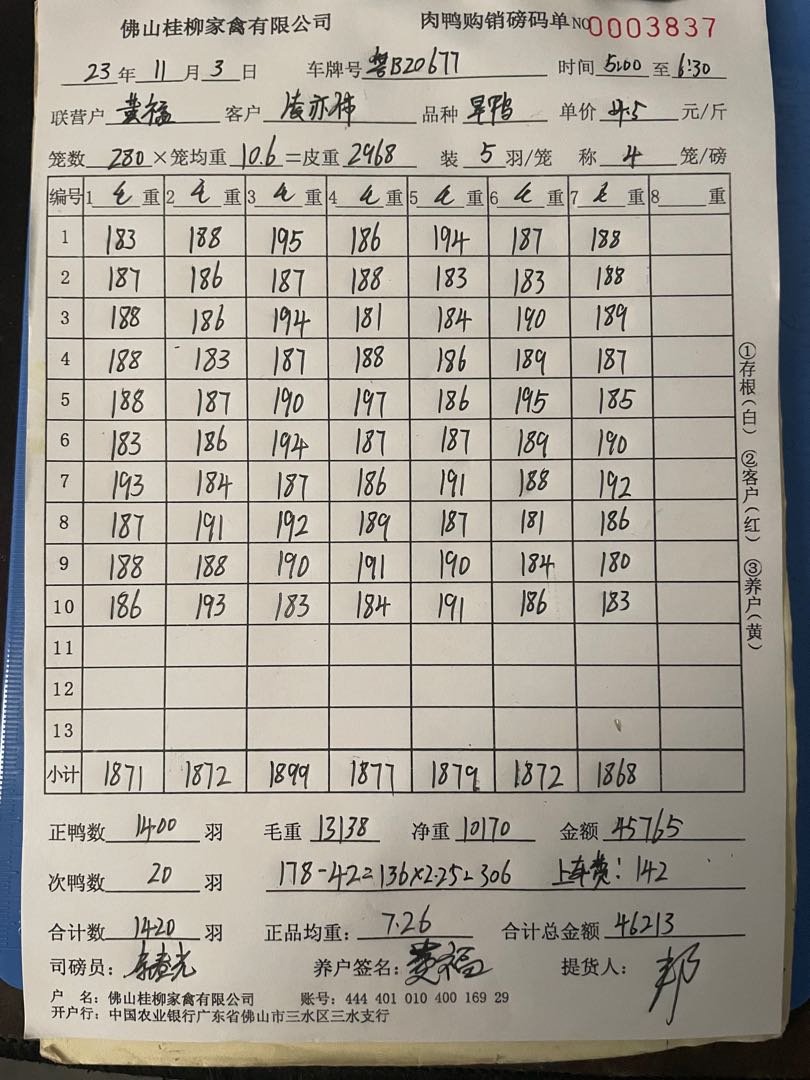 佛山桂柳家禽有限公司 肉鸭购销磅码单 NO 0003837
23年11月3日 车牌号 粤B20677 时间 5:00 至 6:30
联营户 黄福 客户 凌亦伟 品种 旱鸭 单价 4.5 元/斤
笼数 280 ×笼均重 10.6 =皮重 2968 装 5 羽/笼 称 4 笼/磅
编号 1 毛 重 2 毛 重 3 毛 重 4 毛 重 5 毛 重 6 毛 重 7 毛 重 8 重
1 183 188 195 186 194 187 188
2 187 186 187 188 183 183 188
3 188 186 194 181 184 190 189
4 188 183 187 188 186 189 187
5 188 187 190 197 186 195 185
6 183 186 194 187 187 189 190
7 193 184 187 186 191 188 192
8 187 191 192 189 187 181 186
9 188 188 190 191 190 184 180
10 186 193 183 184 191 186 183
11
12
13
小计 1871 1872 1899 1877 1879 1872 1868
正鸭数 1400 羽 毛重 13138 净重 10170 金额 45765
次鸭数 20 羽 178-42=136×2.25=306 上车费：142
合计数 1420 羽 正品均重: 7.26 合计总金额 46213
司磅员: 养户签名: 黄福 提货人: 邦
户 名: 佛山桂柳家禽有限公司 账号: 444 401 010 400 169 29
开户行: 中国农业银行广东省佛山市三水区三水支行
①存根(白) ②客户(红) ③养户(黄)